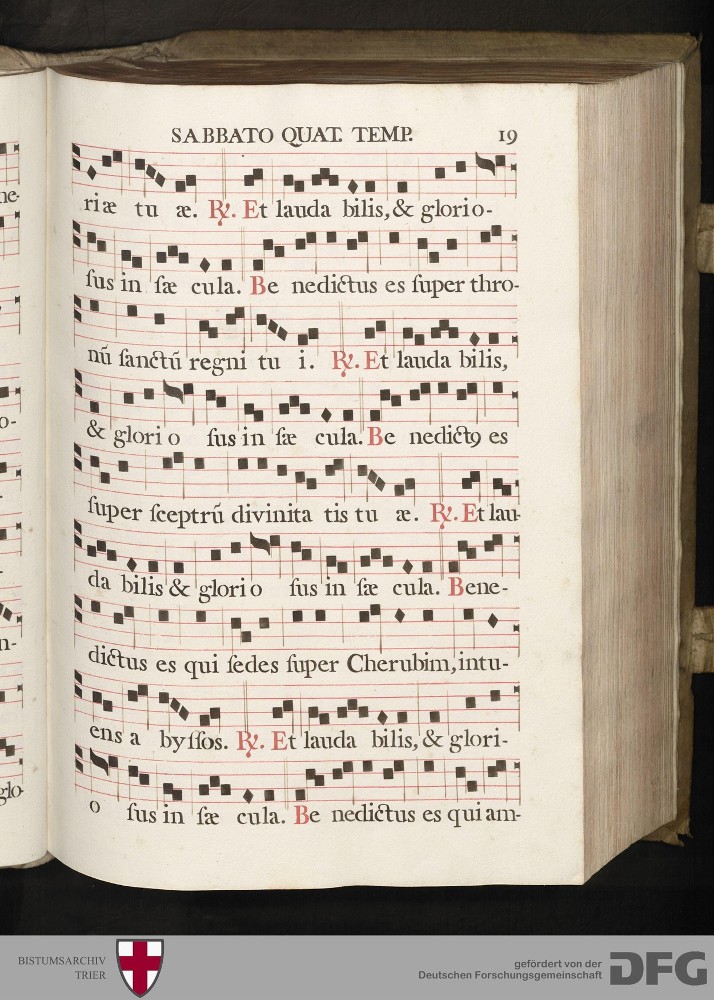 SABBATO QUAT. TEMP. 19
riæ tu æ. ℟. Et lauda bilis, & glorio-
ſus in ſæ cula. Be nedictus es ſuper thro-
nū ſanctū regni tu i. ℟. Et lauda bilis,
& glori o ſus in ſæ cula. Be nedictꝯ es
ſuper ſceptrū divinita tis tu æ. ℟. Et lau-
da bilis & glori o ſus in ſæ cula. Bene-
dictus es qui ſedes ſuper Cherubim, intu-
ens a byſſos. ℟. Et lauda bilis, & glori-
o ſus in ſæ cula. Be nedictus es qui am-
ne-
o-
n-
glo-
BISTUMSARCHIV
TRIER
gefördert von der
Deutschen Forschungsgemeinschaft
DFG